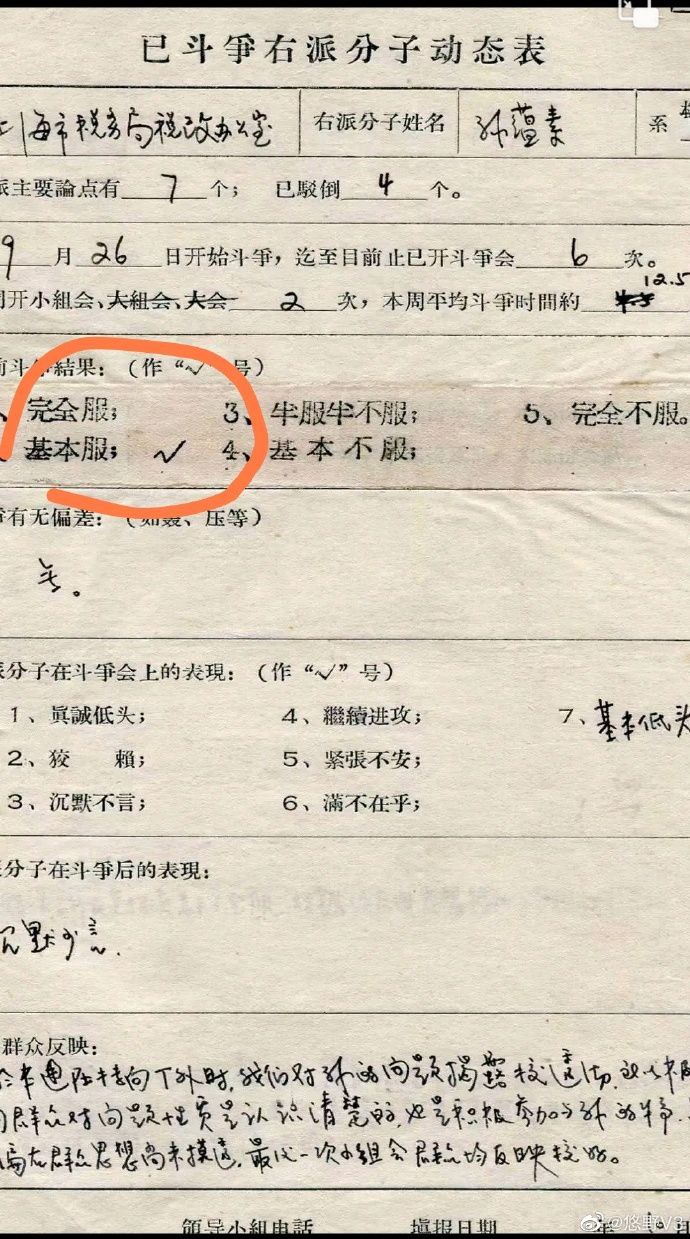 已斗爭右派分子动态表
上海市税务局税政办公室 右派分子姓名 孙蕴素 系
派主要論点有 7 个； 已駁倒 4 个。
9 月 26 日开始斗爭，迄至目前止已开斗爭会 6 次。
开小組会、大組会、大会 2 次，本周平均斗爭时間約 12.5
前斗爭結果：（作“√”号）
完全服； 3、半服半不服； 5、完全不服。
基本服； √ 4、基本不服；
有无偏差：（如轰、压等）
无。
派分子在斗爭会上的表現：（作“√”号）
1、眞誠低头； 4、繼續进攻； 7、基本低头
2、狡 賴； 5、紧張不安；
3、沉默不言； 6、滿不在乎；
分子在斗爭后的表現：
沉默少言.
群众反映：
时，我们对孙的问题揭露较透彻，
群众对问题性质是认识清楚的，也是积极参加与孙的斗争，
群众思想尚未摸透，最后一次小组会群众均反映较好。
領导小組电話 填报日期 年 月
@悠野V3